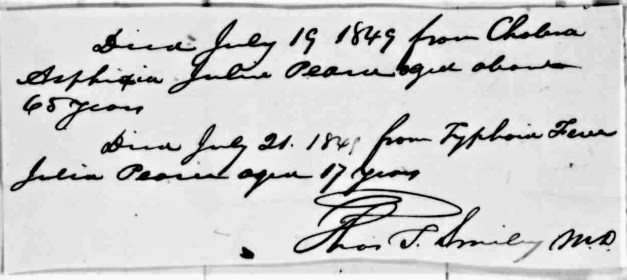 Died July 19 1849 from Cholera
Asphixia Julia Pearce aged about
65 years
Died July 21. 184 from Typhoid Fever
Julia Pearce aged 17 years
Thos T. Smiley M.D.